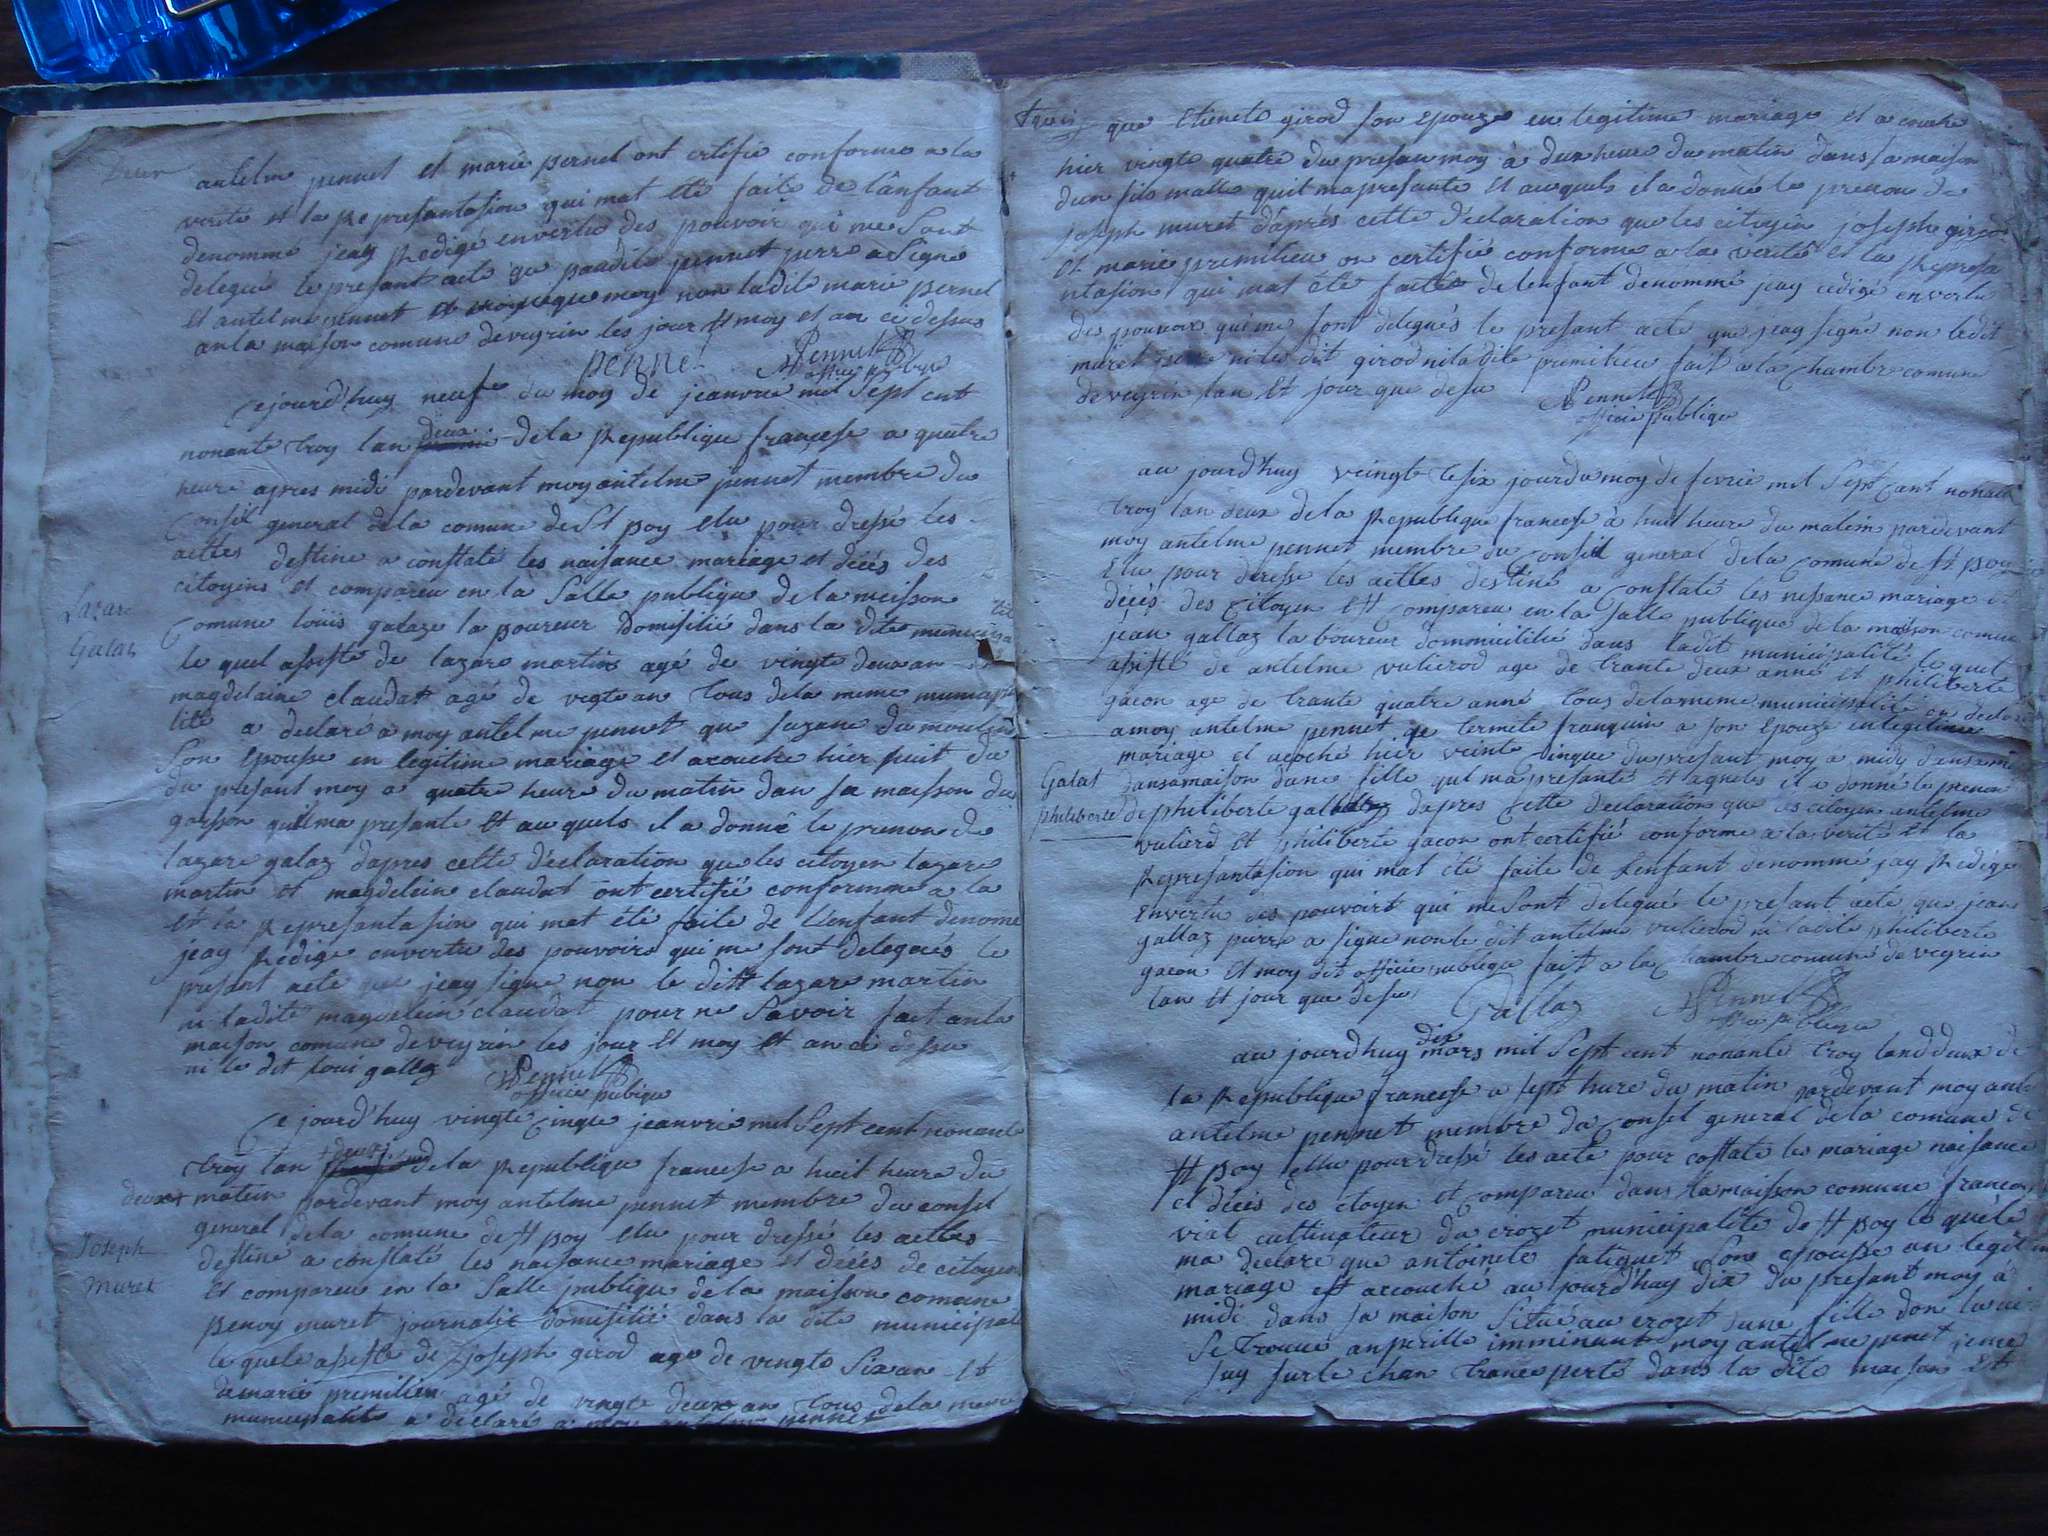 Deux
antelme pennet et marie pernet ont certifie conforme a la
verite et la Represantasion qui mat eté faite de l'anfant
denomme jeay Redigé en vertu des pouvoir qui me sont
delegué le presant acte que paudite pennet pierre a signe
et antelme pennet moy non ladite marie pernet
an la maison comune de veyrin les jour et moy et an ce dessus
penne
Pennet
officie publique
Cejourd'huy neufe du moy de jeanvrié mil Sept cent
nonante troy lan deux de la Republique francesse a quatre
heure apres midi pardevant moy antelme pennet membre du
Consil general de la comune de St poy elu pour dressé les
acttes destine a constaté les naisance mariage et décés des
citoyens et compareu en la Salle publique de la meisson
Comune louis galaze la poureur Domisilié dans la dite municipa
le quel assiste de lazare martin agé de vingte deux an
magdelaine claudat agé de vegte an tous de la meme municipa
lité a declaré a moy antelme pennet que suzane du moulin
Son Epousse en legitime mariage et acouche hier huit du
du presant moy a quatre heure du matin dan sa maisson du
gaisson quil ma presante et au quels il a donné le prenon de
lazare galaz dapres cette déclaration que les citoyen lazare
martin et magdelein claudat ont certifié conformme a la
et la Represantasion qui mat été faite de l'enfant denomé
jeay Redige en vertu des pouvoirs qui me sont delegués le
presant acte que jeay signe non le ditt lazare martin
ni ladite magdelein claudat pour ne Savoir fait an la
maison comune de veyrin les jour et moy et an ci dessu
ni le dit loui gallaz
Pennet
officie publique
Lazare
Galaz
Ce jourd'huy vingte cinque jeanvrie mil Sept cent nonante
troy lan deux de la Republique francesse a huit heure du
deux matin pardevant moy antelme pennet membre du consil
general de la comune de St poy elu pour dressé les acttes
destine a constaté les naisance mariage et décés de citoyen
et compareu en la Salle publique de la maison comune
penoy muret journalié domisilié dans la dite municipal
le quele assiste de joseph girod age de vingte Six an et
de marie premilieu agé de vingte deux an tous de la meme
municipalité a declaré a moy antelme pennet
Joseph
muret
trois
que Etienete girod son epouze en legitime mariage et a couche
hier vingte quatre du presan moy à deux heure du matin dans sa maison
dun fils malle quil ma presante et au quels il a donné le prenon de
joseph muret d'après cette déclaration que les citoyin joseph girod
et marie premilieu on certifié conforme a la verité et la Represa
ntasion qui mat été faitte de lenfant denommé jeay redigé en vertu
des pouvoir qui me sont delegués le presant acte que jeay signé non ledit
muret ni le dit girod ni la dite premilieu fait a la chambre comune
de veyrin lan et jour que desu
Pennet
officie publique
au jourd'huy veingte Six jour du moy de fevrié mil Sept Cant nonante
troy lan deux de la Republique francesse à huit heure du matin pardevant
moy antelme pennet membre du Consil general de la Comune de St poy
Elu pour dresse les acttes destiné a constaté les nessance mariage et
décés des Citoyen Et Compareu en la salle publique de la maison comune
jean gallaz la boureur dommicilié dans ladit municipalité le quel
asisté de antelme vulierod age de trante deux anné et philiberte
gacon age de trante quatre anné tous de la meme municipalité a declaré
a moy antelme pennet que termete franquin a son epouze en legitime
mariage et acoché hier veinte cinque du presant moy a midy
dans sa maison dune fille quil ma presante et aqueles il a donné le prenon
de philiberte gallaz dapres cette declaration que les citoyen antelme
vulierd et philiberte gacon ont certifié conforme a la verité et la
Represantasion qui mat été faite de l'enfant denommé jay Redige
en vertu des pouvoirs qui me sont delegué le presant acté que jean
gallaz pierre a signe non le dit antelme vulierod ni ladite philiberte
gacon et moy dit officie publique fait a la Chambre comune de veyrin
lan et jour que desu
Gallaz
Pennet
officie publique
Galas
philiberte
au jourd'huy dix mars mil Sept cent nonante troy lan deux de
la Republique francesse a sept hure du matin pardevant moy
antelme pennet membre du Consel general de la comune de
St poy ellu pour dressé les acte pour costate les mariage naisance
et décés des citoyen et Compareu dans la maisson comune francoy
vial cultivateur du crozet municipalité de St poy le quele
ma declare que antoinete fatiguet Son epousse an legitime
mariage est accouché au jourd'huy dix du presant moy à
midi dans sa maison Situé au crozet dune fille don la vi
Se trouvé an perille imminant moy antelme pennet jeme
suy sur le chan transsperté dans la dite maison Et